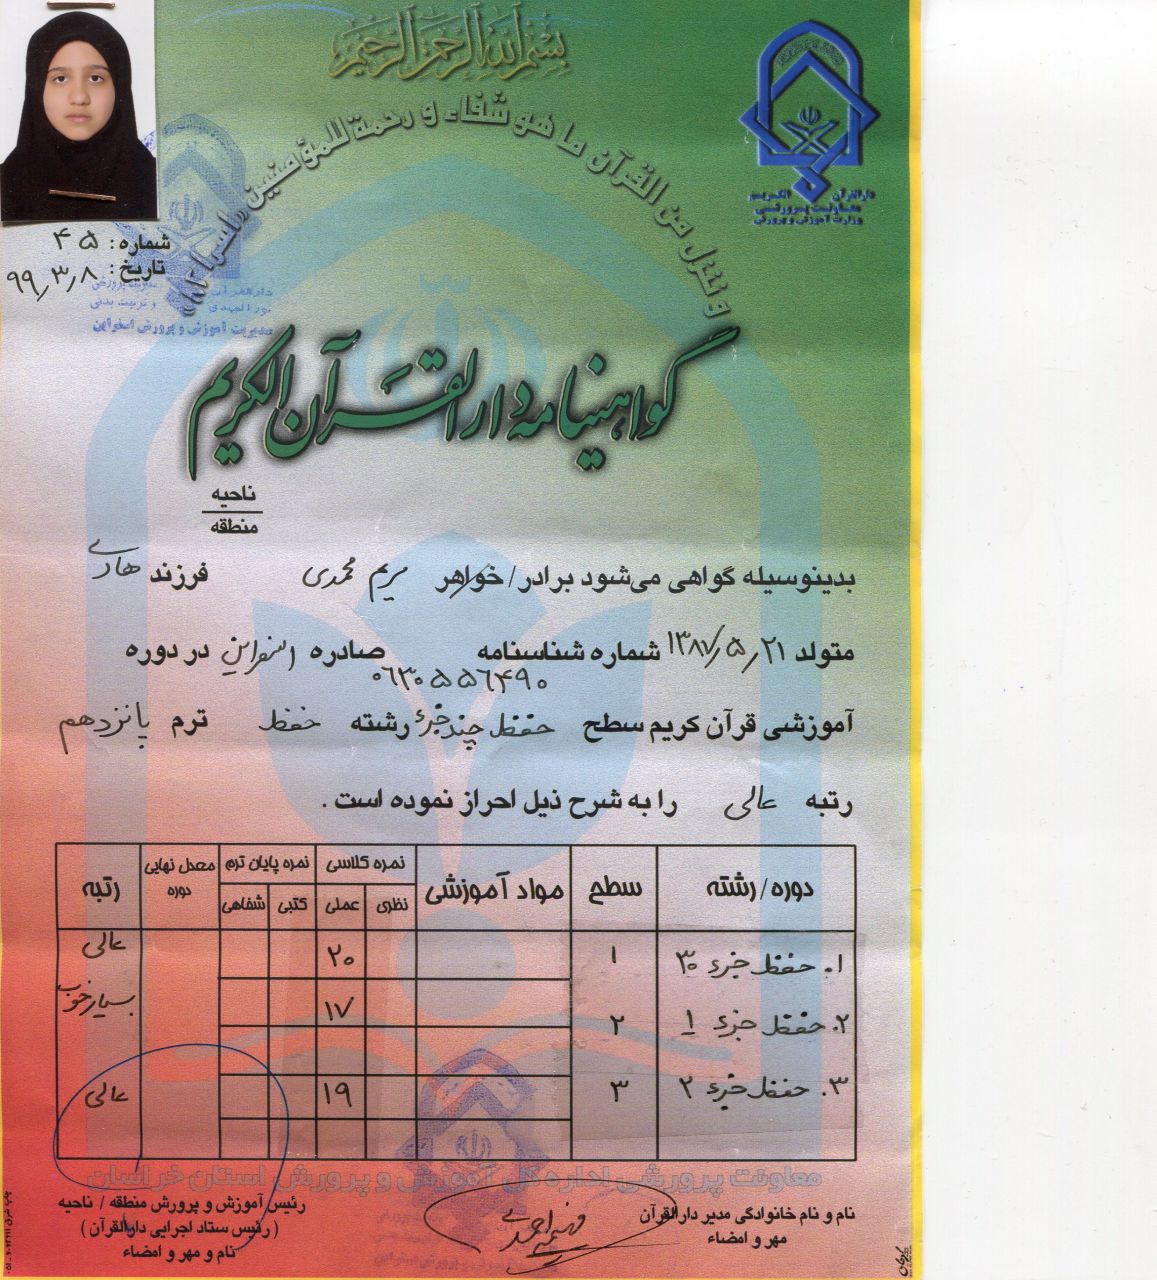 بسم الله الرحمن الرحیم
و ننزل من القرآن ما هو شفاء و رحمة للمؤمنین
دارالقرآن الکریم
معاونت پرورشی
وزارت آموزش و پرورش
شماره: ۴۵
تاریخ: ۹۹/۳/۸
مدیریت آموزش و پرورش اسفراین
گواهینامه دارالقرآن الکریم
ناحیه
منطقه
بدینوسیله گواهی می‌شود برادر/خواهر مریم محمدی فرزند هادی
متولد ۱۳۸۷/۵/۲۱ شماره شناسنامه ۰۶۳۰۵۵۶۴۹۰ صادره اسفراین در دوره
آموزشی قرآن کریم سطح حفظ چند جزء رشته حفظ ترم پانزدهم
رتبه عالی را به شرح ذیل احراز نموده است.
دوره/رشته سطح مواد آموزشی نمره کلاسی نمره پایان ترم معدل نهایی دوره رتبه
نظری عملی کتبی شفاهی
۱. حفظ جزء ۳۰ ۱ ۲۰ عالی
۲. حفظ جزء ۱ ۲ ۱۷ بسیار خوب
۳. حفظ جزء ۲ ۳ ۱۹ عالی
معاونت پرورشی اداره کل آموزش و پرورش استان خراسان
نام و نام خانوادگی مدیر دارالقرآن
مهر و امضاء
فهیمه احمدی
رئیس آموزش و پرورش منطقه / ناحیه
(رئیس ستاد اجرایی دارالقرآن)
نام و مهر و امضاء